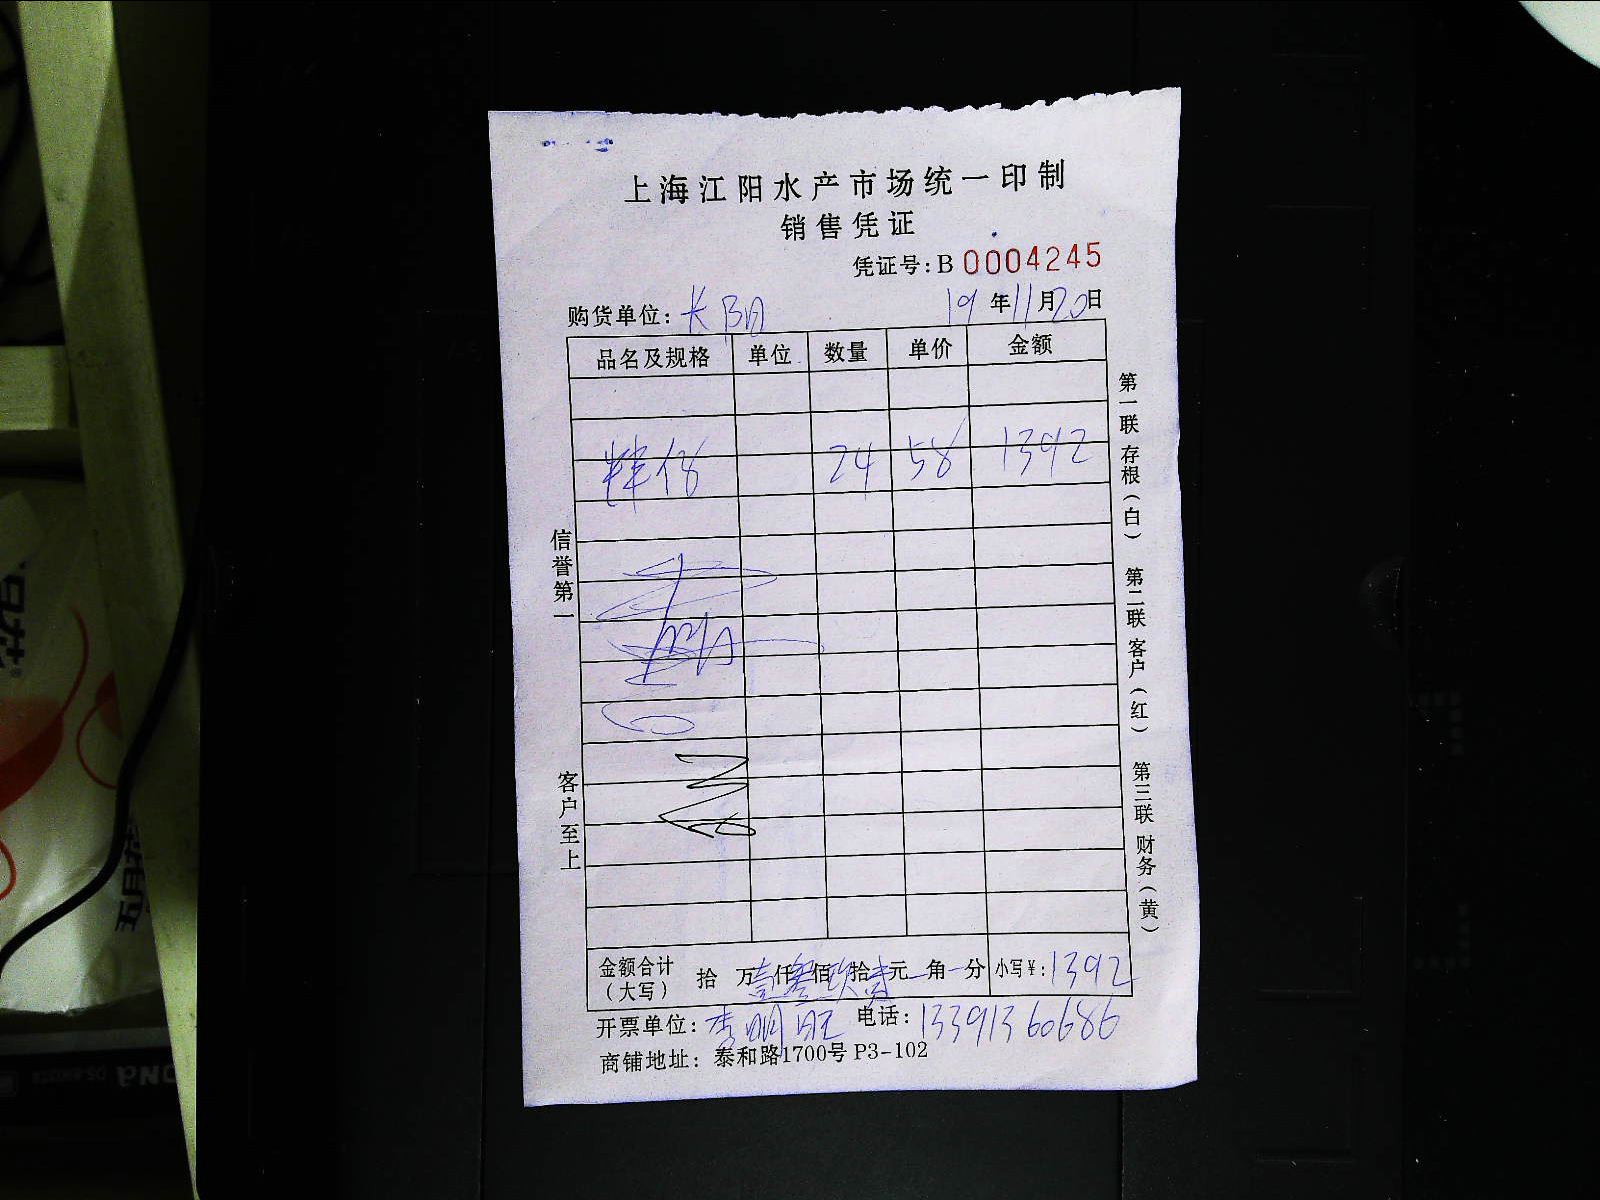 上海江阳水产市场统一印制
销售凭证
凭证号：B 0004245
购货单位：长阳 19年11月20日
品名及规格 单位 数量 单价 金额
24 58 1392
金额合计（大写） 拾 万壹仟叁佰玖拾贰元 角 分 小写￥：1392
开票单位：李明旺 电话：13391360686
商铺地址：泰和路1700号 P3-102
信誉第一
客户至上
第一联 存根（白）
第二联 客户（红）
第三联 财务（黄）